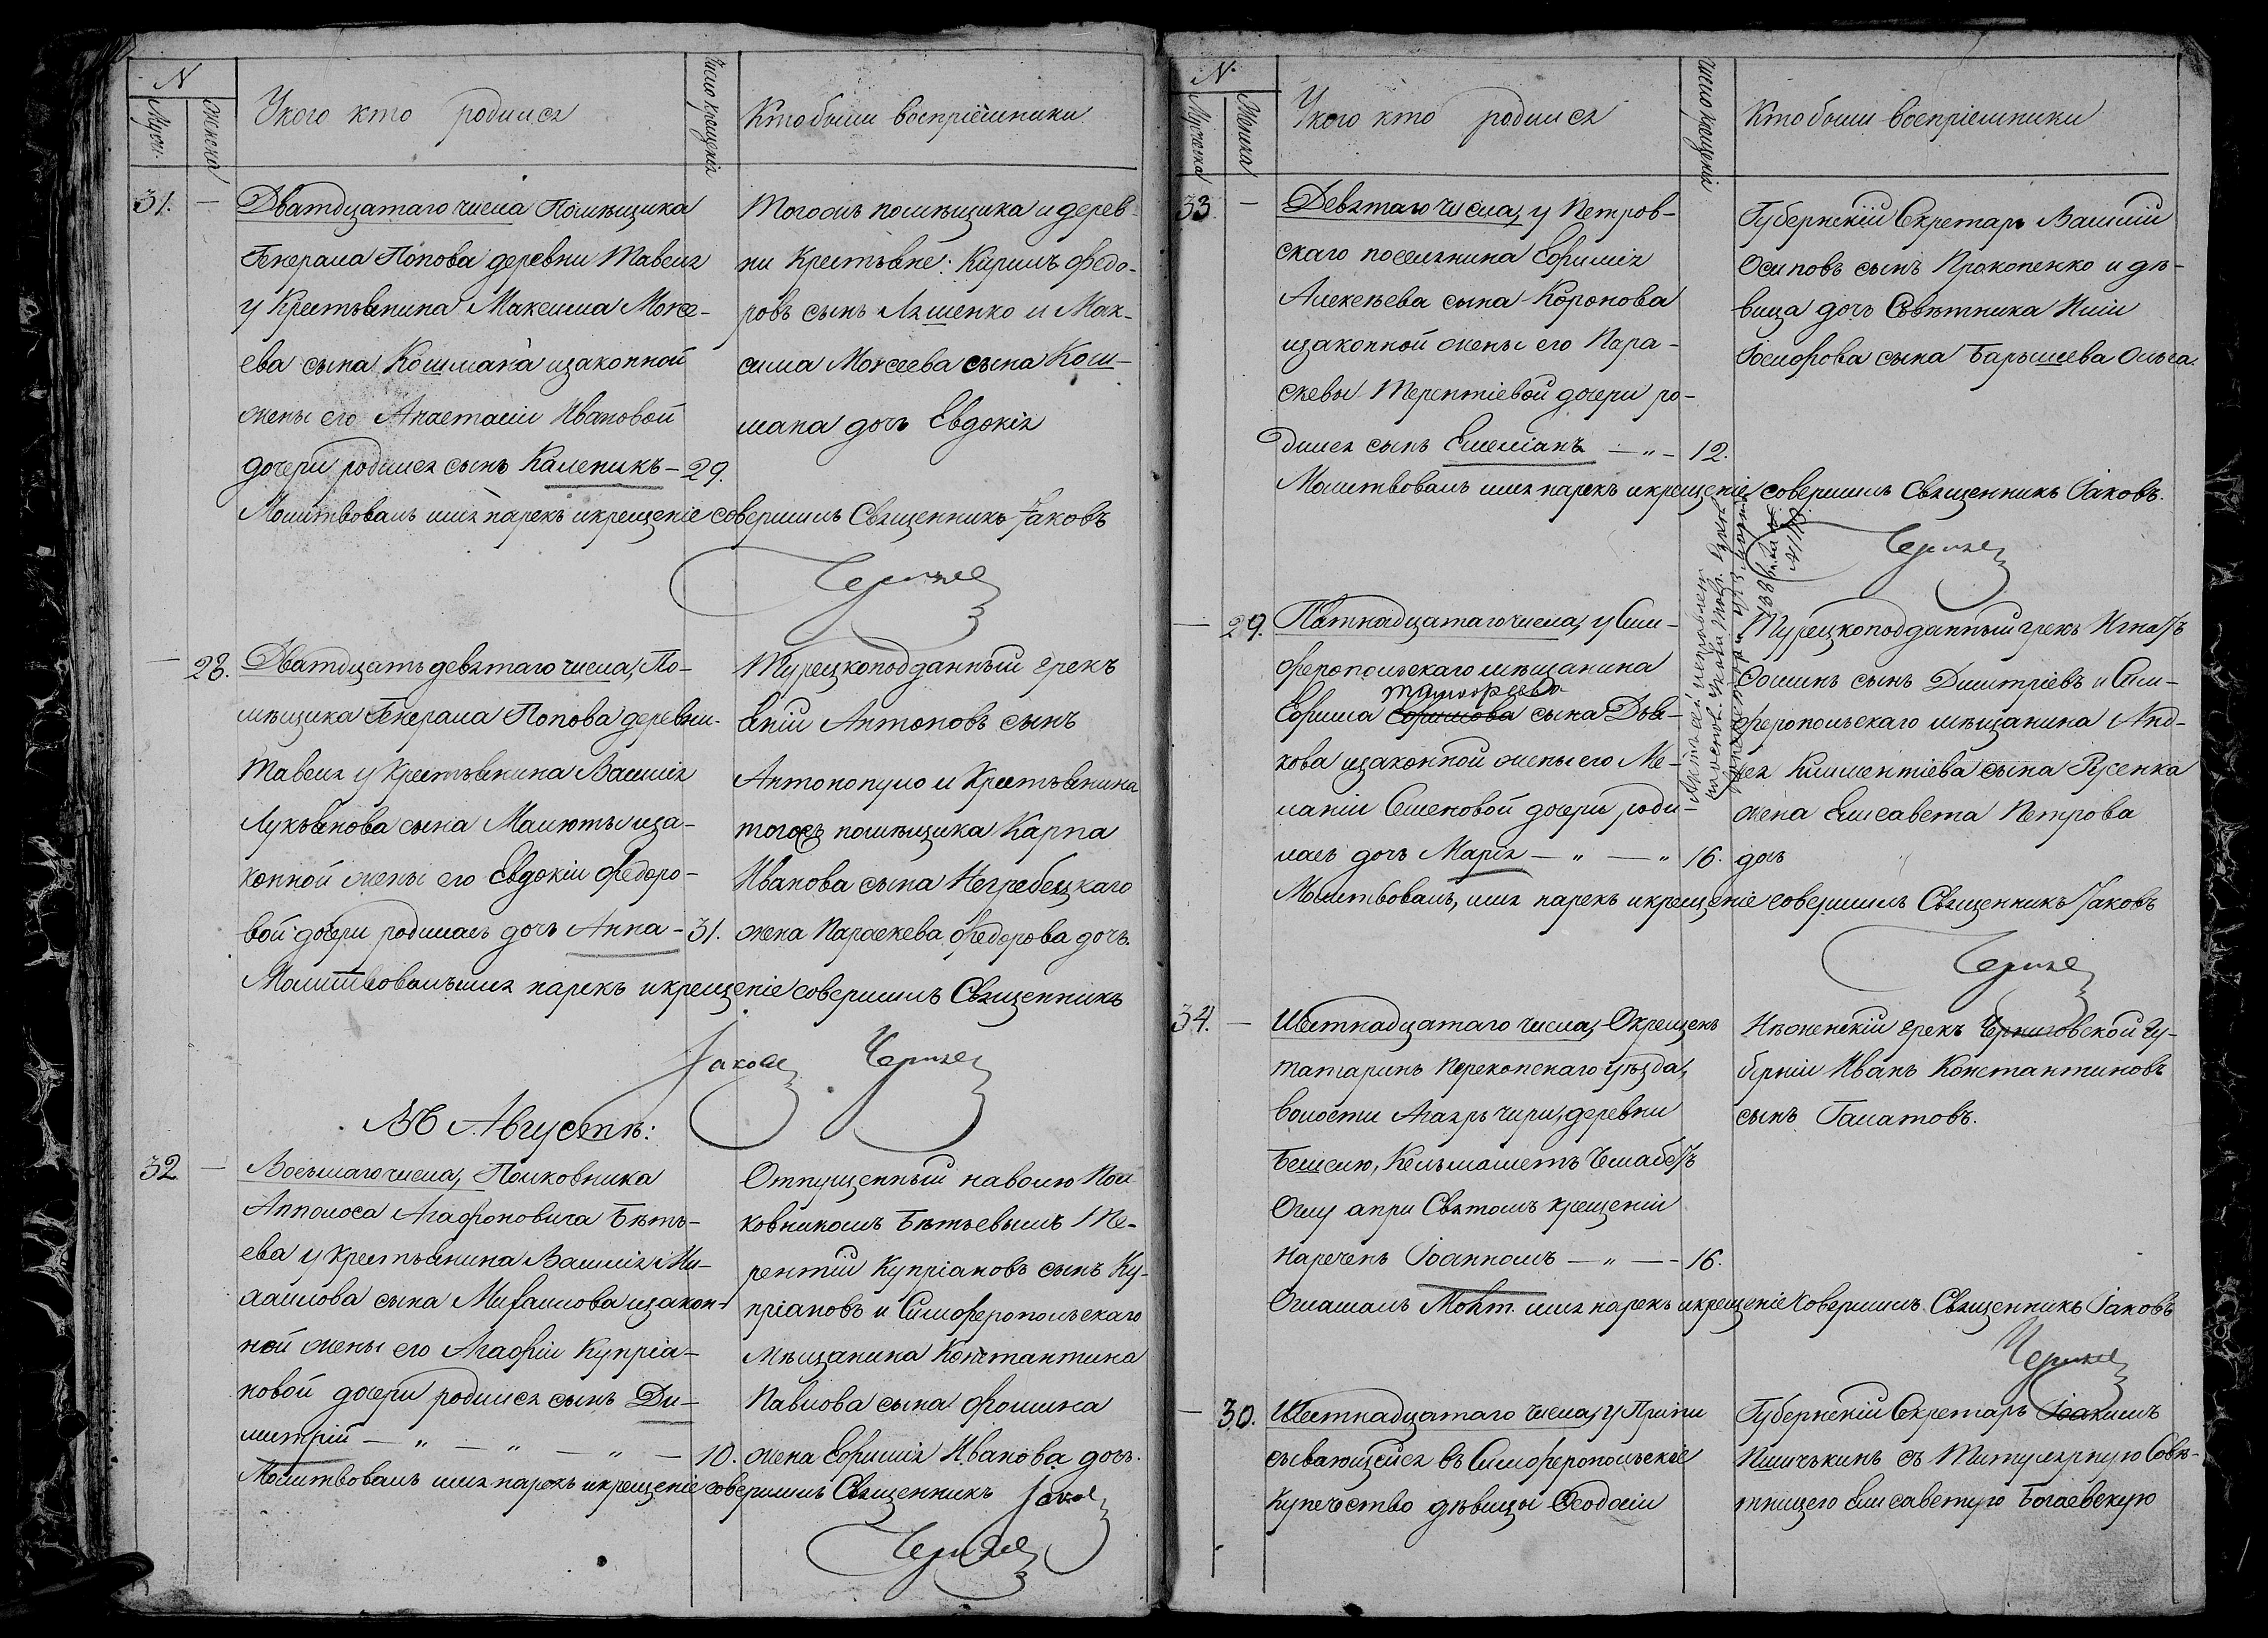 N
Мужеск.
Женска
У кого кто родился
Число крещенія
Кто были воспріемники
31. —
Дватдцатаго числа Помѣщика
Генерала Попова деревни Тавеля
у Крестьянина Максима Мокее-
ева сына Кошмана и законной
жены его Анастасіи Ивановой
дочери родился сынъ Каленикъ — 29.
Тогожъ помѣщика и дерев-
ни Крестьяне: Кирилъ Федо-
ровъ сынъ Ляшенко и Мак-
сима Мокеева сына Кош-
мана дочь Евдокія
Молитвовалъ имя нарекъ и крещеніе совершилъ Священникъ Іаковъ
— 28.
Дватдцать девятаго числа, По-
мѣщика Генерала Попова деревни
Тавеля у Крестьянина Василія
Лукьянова сына Малюты и за-
конной жены его Евдокіи Федоро-
вой дочери родилась дочь Анна — 31.
Турецкоподданный грекъ
Антоновъ сынъ
Антонопуло и Крестьянина
тогожъ помѣщика Карпа
Иванова сына Негребецкаго
жена Параскева Федорова дочь.
Молитвовалъ имя нарекъ и крещеніе совершилъ Священникъ
Іаковъ
Въ Августѣ:
32 —
Восьмаго числа, Полковника
Апполоса Агафоновича Бѣть-
ева у крестьянина Василія Ми-
хаилова сына Михаилова и закон-
ной жены его Агафіи Купріа-
новой дочери родился сынъ Ди-
митрій — „ — „ — „ — 10.
Отпущенный на волю Пол
ковникомъ Бѣтьевымъ Те-
рентій Купріановъ сынъ Ку-
пріановъ и Симферопольскаго
Мѣщанина Константина
Павлова сына Фомина
жена Ефимія Иванова дочь.
Молитвовалъ имя нарекъ и крещеніе совершилъ Священникъ Іаковъ
N
Мужеска
Женска
У кого кто родился
Число крещенія
Кто были воспріемники
33 —
Девятаго числа, у Петров-
скаго поселянина Ефимія
Алексѣева сына Коронова
и законной жены его Пара-
скевы Терентіевой дочери ро-
дился сынъ Емеліанъ — „ — 12.
Губернскій Секретарь Василій
Осиповъ сынъ Прокопенко и дѣ-
вица дочь Совѣтника Иліи
сына Барышева Ольга.
Молитвовалъ имя нарекъ и крещеніе совершилъ Священникъ Іаковъ.
— 29.
Пятнадцатаго числа, у Сим-
феропольскаго мѣщанина
Ефима сына Дья-
кова и законной жены его Ме-
ланіи Семеновой дочери роди-
лась дочь Марія — „ — „ 16.
Турецкоподданный грекъ Игнатъ
сынъ Дмитріевъ и Сим-
феропольскаго мѣщанина Анд-
рея Климентіева сына Русенка
жена Елисавета Петрова
дочь
Молитвовалъ, имя нарекъ и крещеніе совершилъ Священникъ Іаковъ
34. —
Шестнадцатаго числа, Окрещенъ
татаринъ Перекопскаго уѣзда,
волости деревни
Кельмаметъ
Оглу а при Святомъ крещеніи
наречен Іоанномъ — „ — 16.
Нѣженскій грекъ Черниговской Гу-
берніи Иванъ Константиновъ
сынъ Галатовъ.
Оглашалъ Молит. имя нарекъ и крещеніе совершилъ Священникъ Іаковъ
— 30.
Шестнадцатаго числа, у Припи
сывающейся въ Симферопольское
Купечество дѣвицы Феодосіи
Губернскій Секретарь Іоакимъ
съ Титулярную Совѣ-
тницею Елисаветую Богаевскую